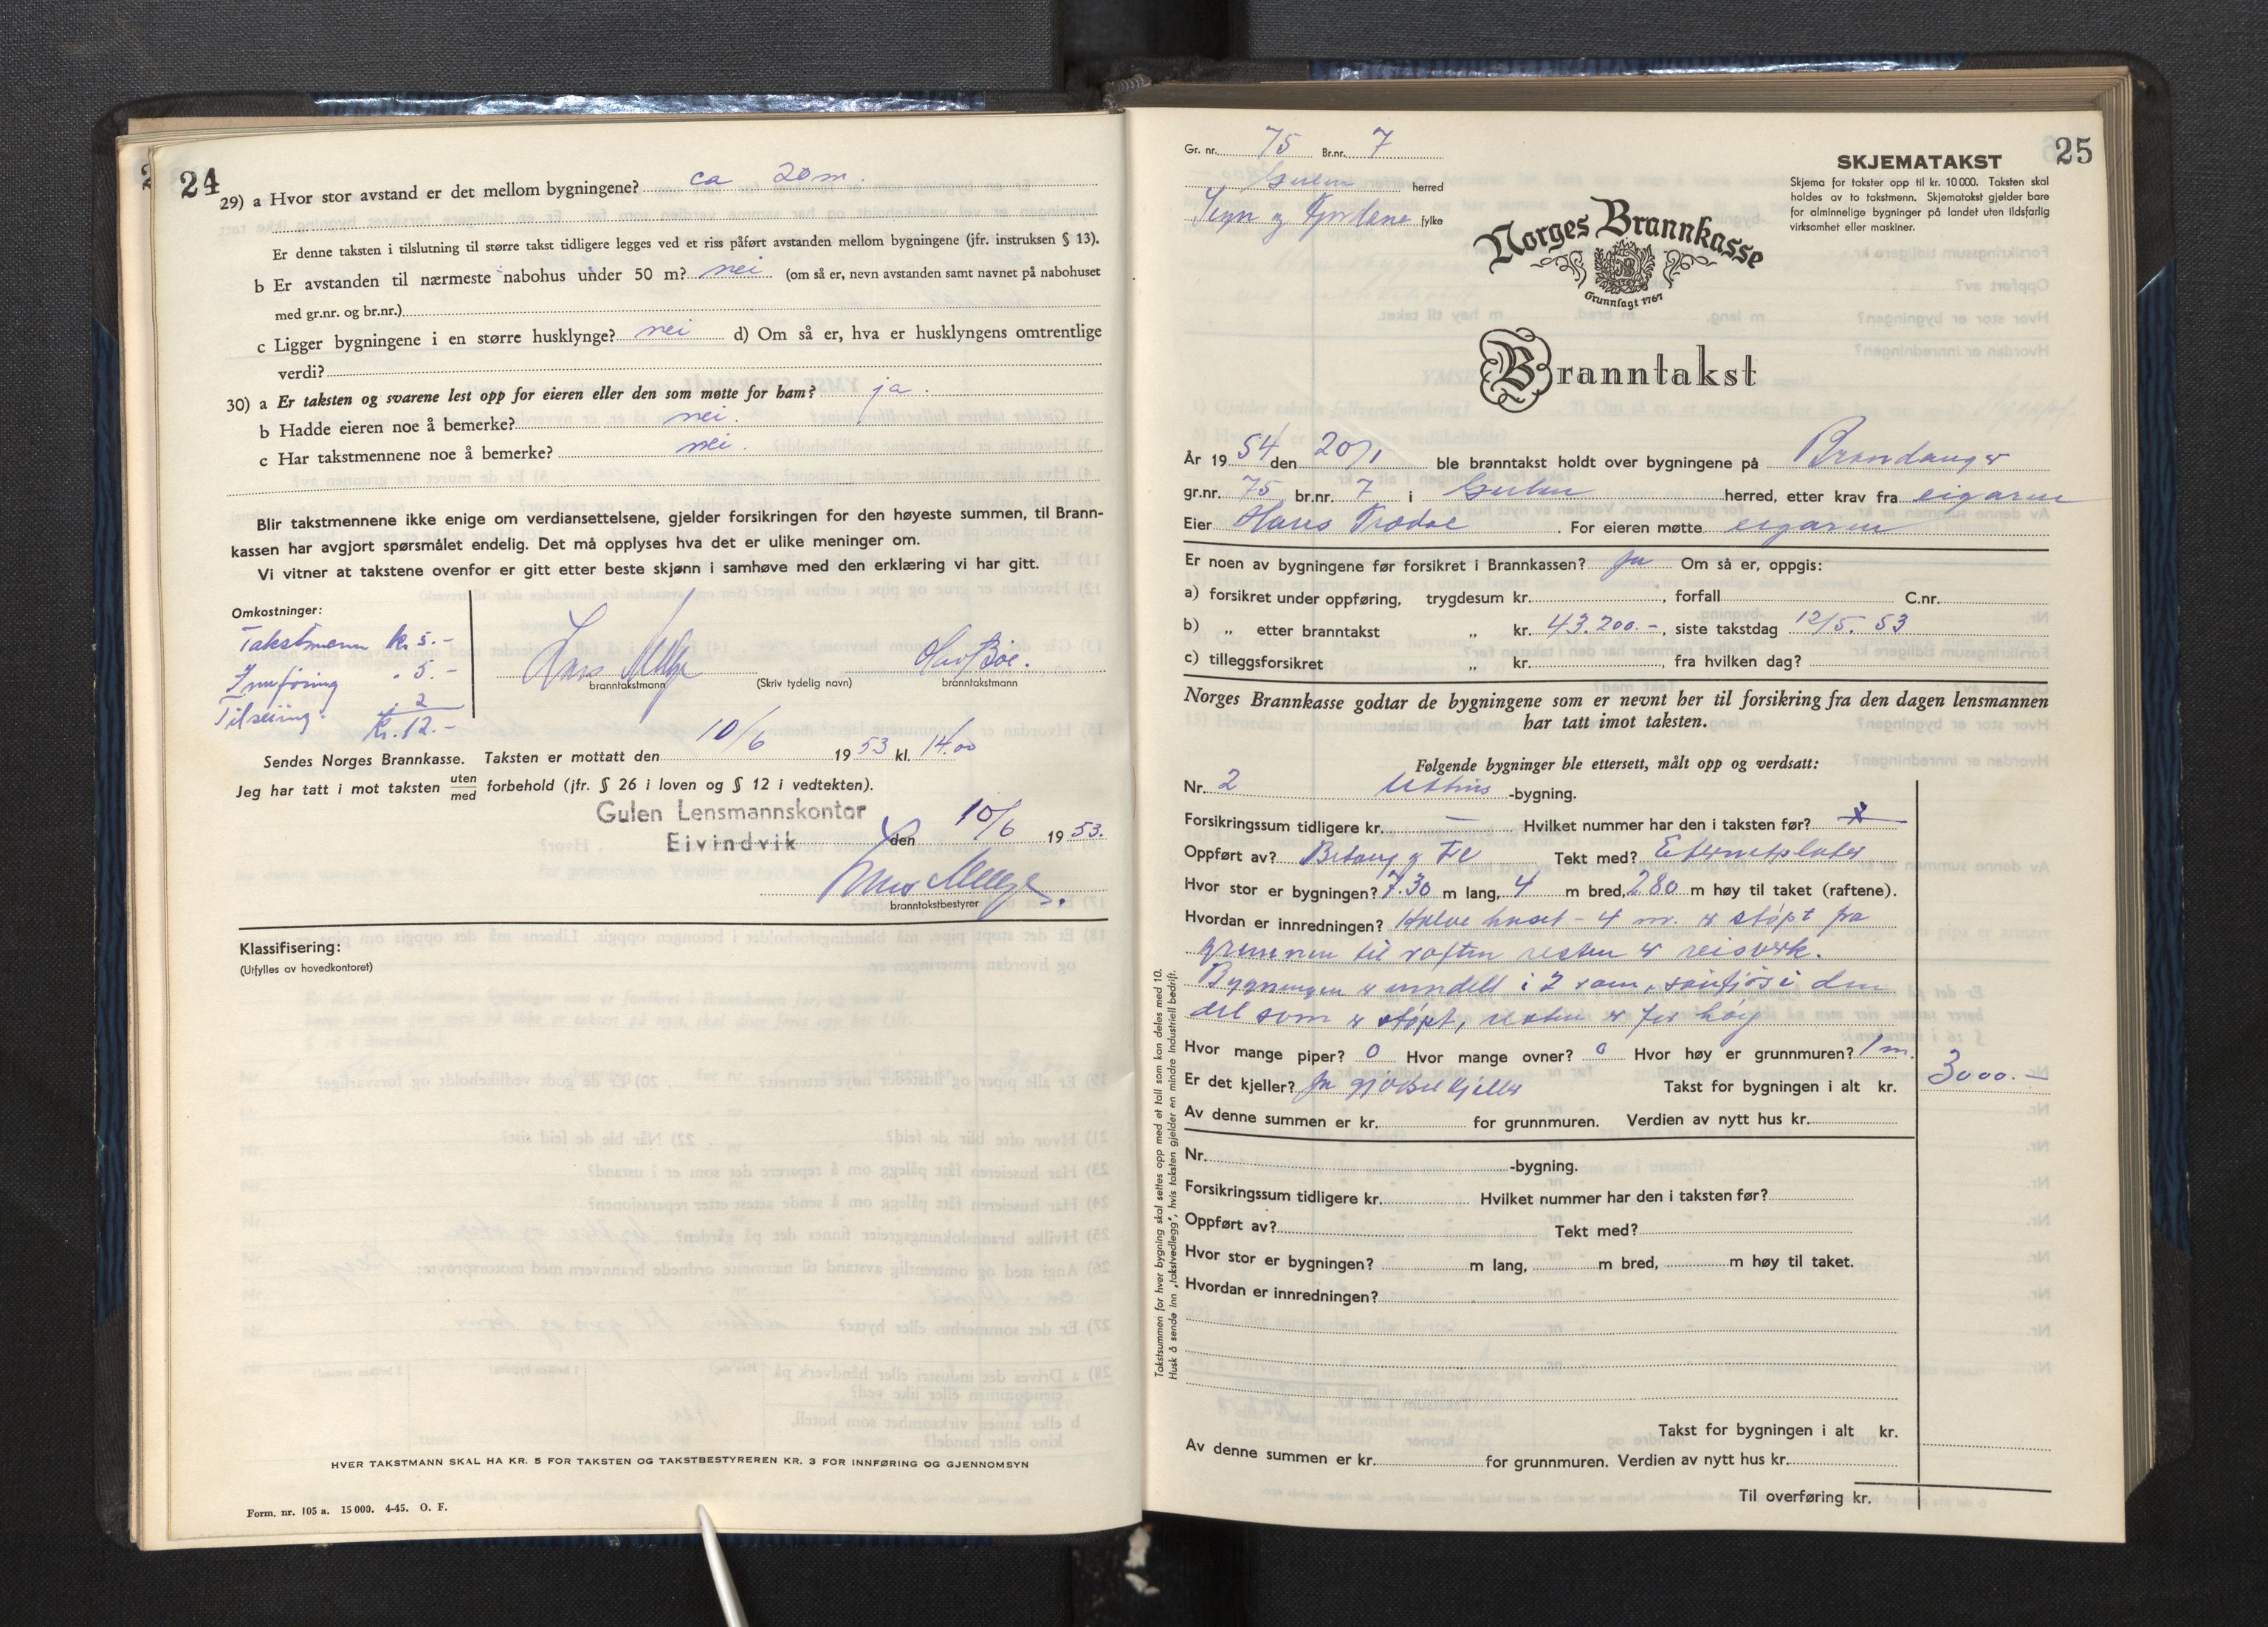 24
29) a Hvor stor avstand er det mellom bygningene? ca 20 m.
Er denne taksten i tilslutning til større takst tidligere legges ved et riss påført avstanden mellom bygningene (jfr. instruksen § 13).
b Er avstanden til nærmeste nabohus under 50 m? nei (om så er, nevn avstanden samt navnet på nabohuset
med gr.nr. og br.nr.)
c Ligger bygningene i en større husklynge? nei d) Om så er, hva er husklyngens omtrentlige
verdi?
30) a Er taksten og svarene lest opp for eieren eller den som møtte for ham? ja.
b Hadde eieren noe å bemerke? nei.
c Har takstmennene noe å bemerke? nei.
Blir takstmennene ikke enige om verdiansettelsene, gjelder forsikringen for den høyeste summen, til Brann-
kassen har avgjort spørsmålet endelig. Det må opplyses hva det er ulike meninger om.
Vi vitner at takstene ovenfor er gitt etter beste skjønn i samhøve med den erklæring vi har gitt.
Omkostninger:
Takstmenn kr. 5.-
Innføring " 5.-
" 2
Kr. 12.-
Lars Olav Bøe.
branntakstmann (Skriv tydelig navn) branntakstmann
Sendes Norges Brannkasse. Taksten er mottatt den 10/6 1953 kl. 14.00
Jeg har tatt i mot taksten uten med forbehold (jfr. § 26 i loven og § 12 i vedtekten).
Gulen Lensmannskontor
Eivindvik den 10/6 1953.
branntakstbestyrer
Klassifisering:
(Utfylles av hovedkontoret)
HVER TAKSTMANN SKAL HA KR. 5 FOR TAKSTEN OG TAKSTBESTYREREN KR. 3 FOR INNFØRING OG GJENNOMSYN
Form. nr. 105 a. 15 000. 4-45. O. F.
25
Gr. nr. 75 Br.nr. 7
Gulen herred
Sogn og Fjordane fylke
SKJEMATAKST
Skjema for takster opp til kr. 10 000. Taksten skal
holdes av to takstmenn. Skjematakst gjelder bare
for alminnelige bygninger på landet uten ildsfarlig
virksomhet eller maskiner.
Norges Brannkasse
Grunnlagt 1767
Branntakst
År 1954 den 20/1 ble branntakst holdt over bygningene på Brandanger
gr.nr. 75 br.nr. 7 i Gulen herred, etter krav fra eigaren
Eier Hans Trædal. For eieren møtte eigaren
Er noen av bygningene før forsikret i Brannkassen? Ja Om så er, oppgis:
a) forsikret under oppføring, trygdesum kr. , forfall C.nr.
b) „ etter branntakst „ kr. 43.200.-, siste takstdag 12/5. 53
c) tilleggsforsikret „ kr. , fra hvilken dag?
Norges Brannkasse godtar de bygningene som er nevnt her til forsikring fra den dagen lensmannen
har tatt imot taksten.
Følgende bygninger ble ettersett, målt opp og verdsatt:
Nr. 2 Uthus -bygning.
Forsikringssum tidligere kr. — Hvilket nummer har den i taksten før?
Oppført av? Betong og Tre Tekt med? Eternitplater
Hvor stor er bygningen? 7.30 m lang, 4 m bred, 2.80 m høy til taket (raftene).
Hvordan er innredningen? Halve huset - 4 m. er støpt fra
grunnen til raften resten er reisverk.
Bygningen er inndelt i 2 rom, sauefjøs i den
del som er støpt, resten er for høy
Hvor mange piper? 0 Hvor mange ovner? 0 Hvor høy er grunnmuren? 1 m.
Er det kjeller? Ja gjødselkjeller Takst for bygningen i alt kr. 3000.—
Av denne summen er kr. for grunnmuren. Verdien av nytt hus kr.
Nr. -bygning.
Forsikringssum tidligere kr. Hvilket nummer har den i taksten før?
Oppført av? Tekt med?
Hvor stor er bygningen? m lang, m bred, m høy til taket.
Hvordan er innredningen?
Takst for bygningen i alt kr.
Av denne summen er kr. for grunnmuren. Verdien av nytt hus kr.
Til overføring kr.
Takstsummen for hver bygning skal settes opp med et tall som kan deles med 10.
Husk å sende inn „takstvedlegg", hvis taksten gjelder en mindre industriell bedrift.